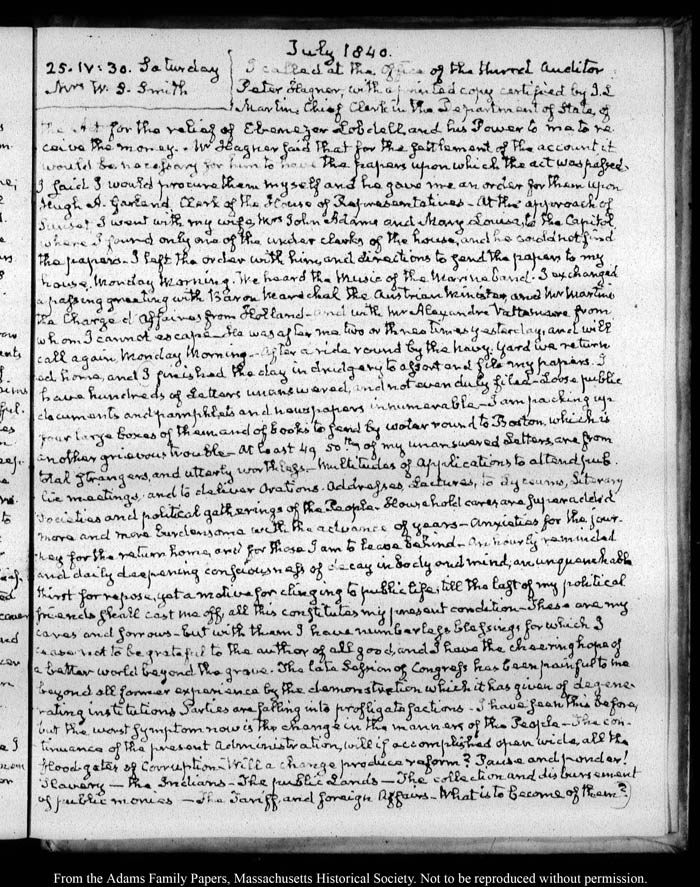 July 1840.
25. IV: 30. Saturday
Mrs W. S. Smith
I called at the Office of the third Auditor
Peter Hagner, with a printed copy certified by J. L
Martin, Chief Clerk in the Department of State, of
the Act for the relief of Ebenezer Lobdell, and his Power to me to re-
ceive the money. Mr Hagner said that for the settlement of the account it
would be necessary for him to have the papers upon which the act was passed
I said I would procure them myself and he gave me an order for them upon
Hugh A. Garland Clerk of the House of Representatives - At the approach of
Sunset I went with my wife, Mrs John Adams and Mary Louisa, to the Capitol,
where I found only one of the under clerks of the house, and he could not find
the papers - I left the order with him, and directions to send the papers to my
house, Monday Morning. We heard the Music of the Marine band. I exchanged
a passing greeting with Baron Mareschal the Austrian Minister, and Mr Martini
the Chargé d'Affaires from Holland - and with Mr Alexandre Vattemare from
whom I cannot escape - He was after me two or three times yesterday, and will
call again, Monday Morning - After a ride round by the navy-yard we return
ed home, and I finished the day in drudgery to assort and file my papers. I
have hundreds of Letters unanswered, and not even duly filed - Loose public
documents and pamphlets and newspapers innumerable - I am packing up
four large boxes of them and of books to send by water round to Boston, which is
another grievous trouble - At least 49 50ths of my unanswered Letters, are from
total strangers, and utterly worthless - multitudes of applications to attend pub-
lic meetings, and to deliver Orations. Addresses, Lectures, to Lyceums, Literary
Societies and political gatherings of the People - Household cares are superadded
more and more burdensome with the advance of years - Anxieties for the jour-
ney for the return home, and for those I am to leave behind - An hourly reminded
and daily deepening consciousness of decay in body and mind; an unquenchable
thirst for repose, yet a motive for clinging to public life, till the last of my political
friends shall cast me off, all this constitutes my present condition - These are my
cares and sorrows - but with them I have numberless blessings for which I
cease not to be grateful to the author of all good, and I have the cheering hope of
a better world beyond the grave. The late Session of Congress has been painful to me
beyond all former experience by the demonstration which it has given of degene-
rating institutions Parties are falling into profligate factions - I have seen this before,
but the worst symptom now is the change in the manners of the People - The con-
tinuance of the present Administration, will if accomplished open wide, all the
flood gates of Corruption - Will a change produce reform? Pause and ponder!
Slavery - the Indians - The public Lands - The collection and disbursement
of public monies - The Tariff, and foreign Affairs - What is to become of them?
From the Adams Family Papers, Massachusetts Historical Society. Not to be reproduced without permission.